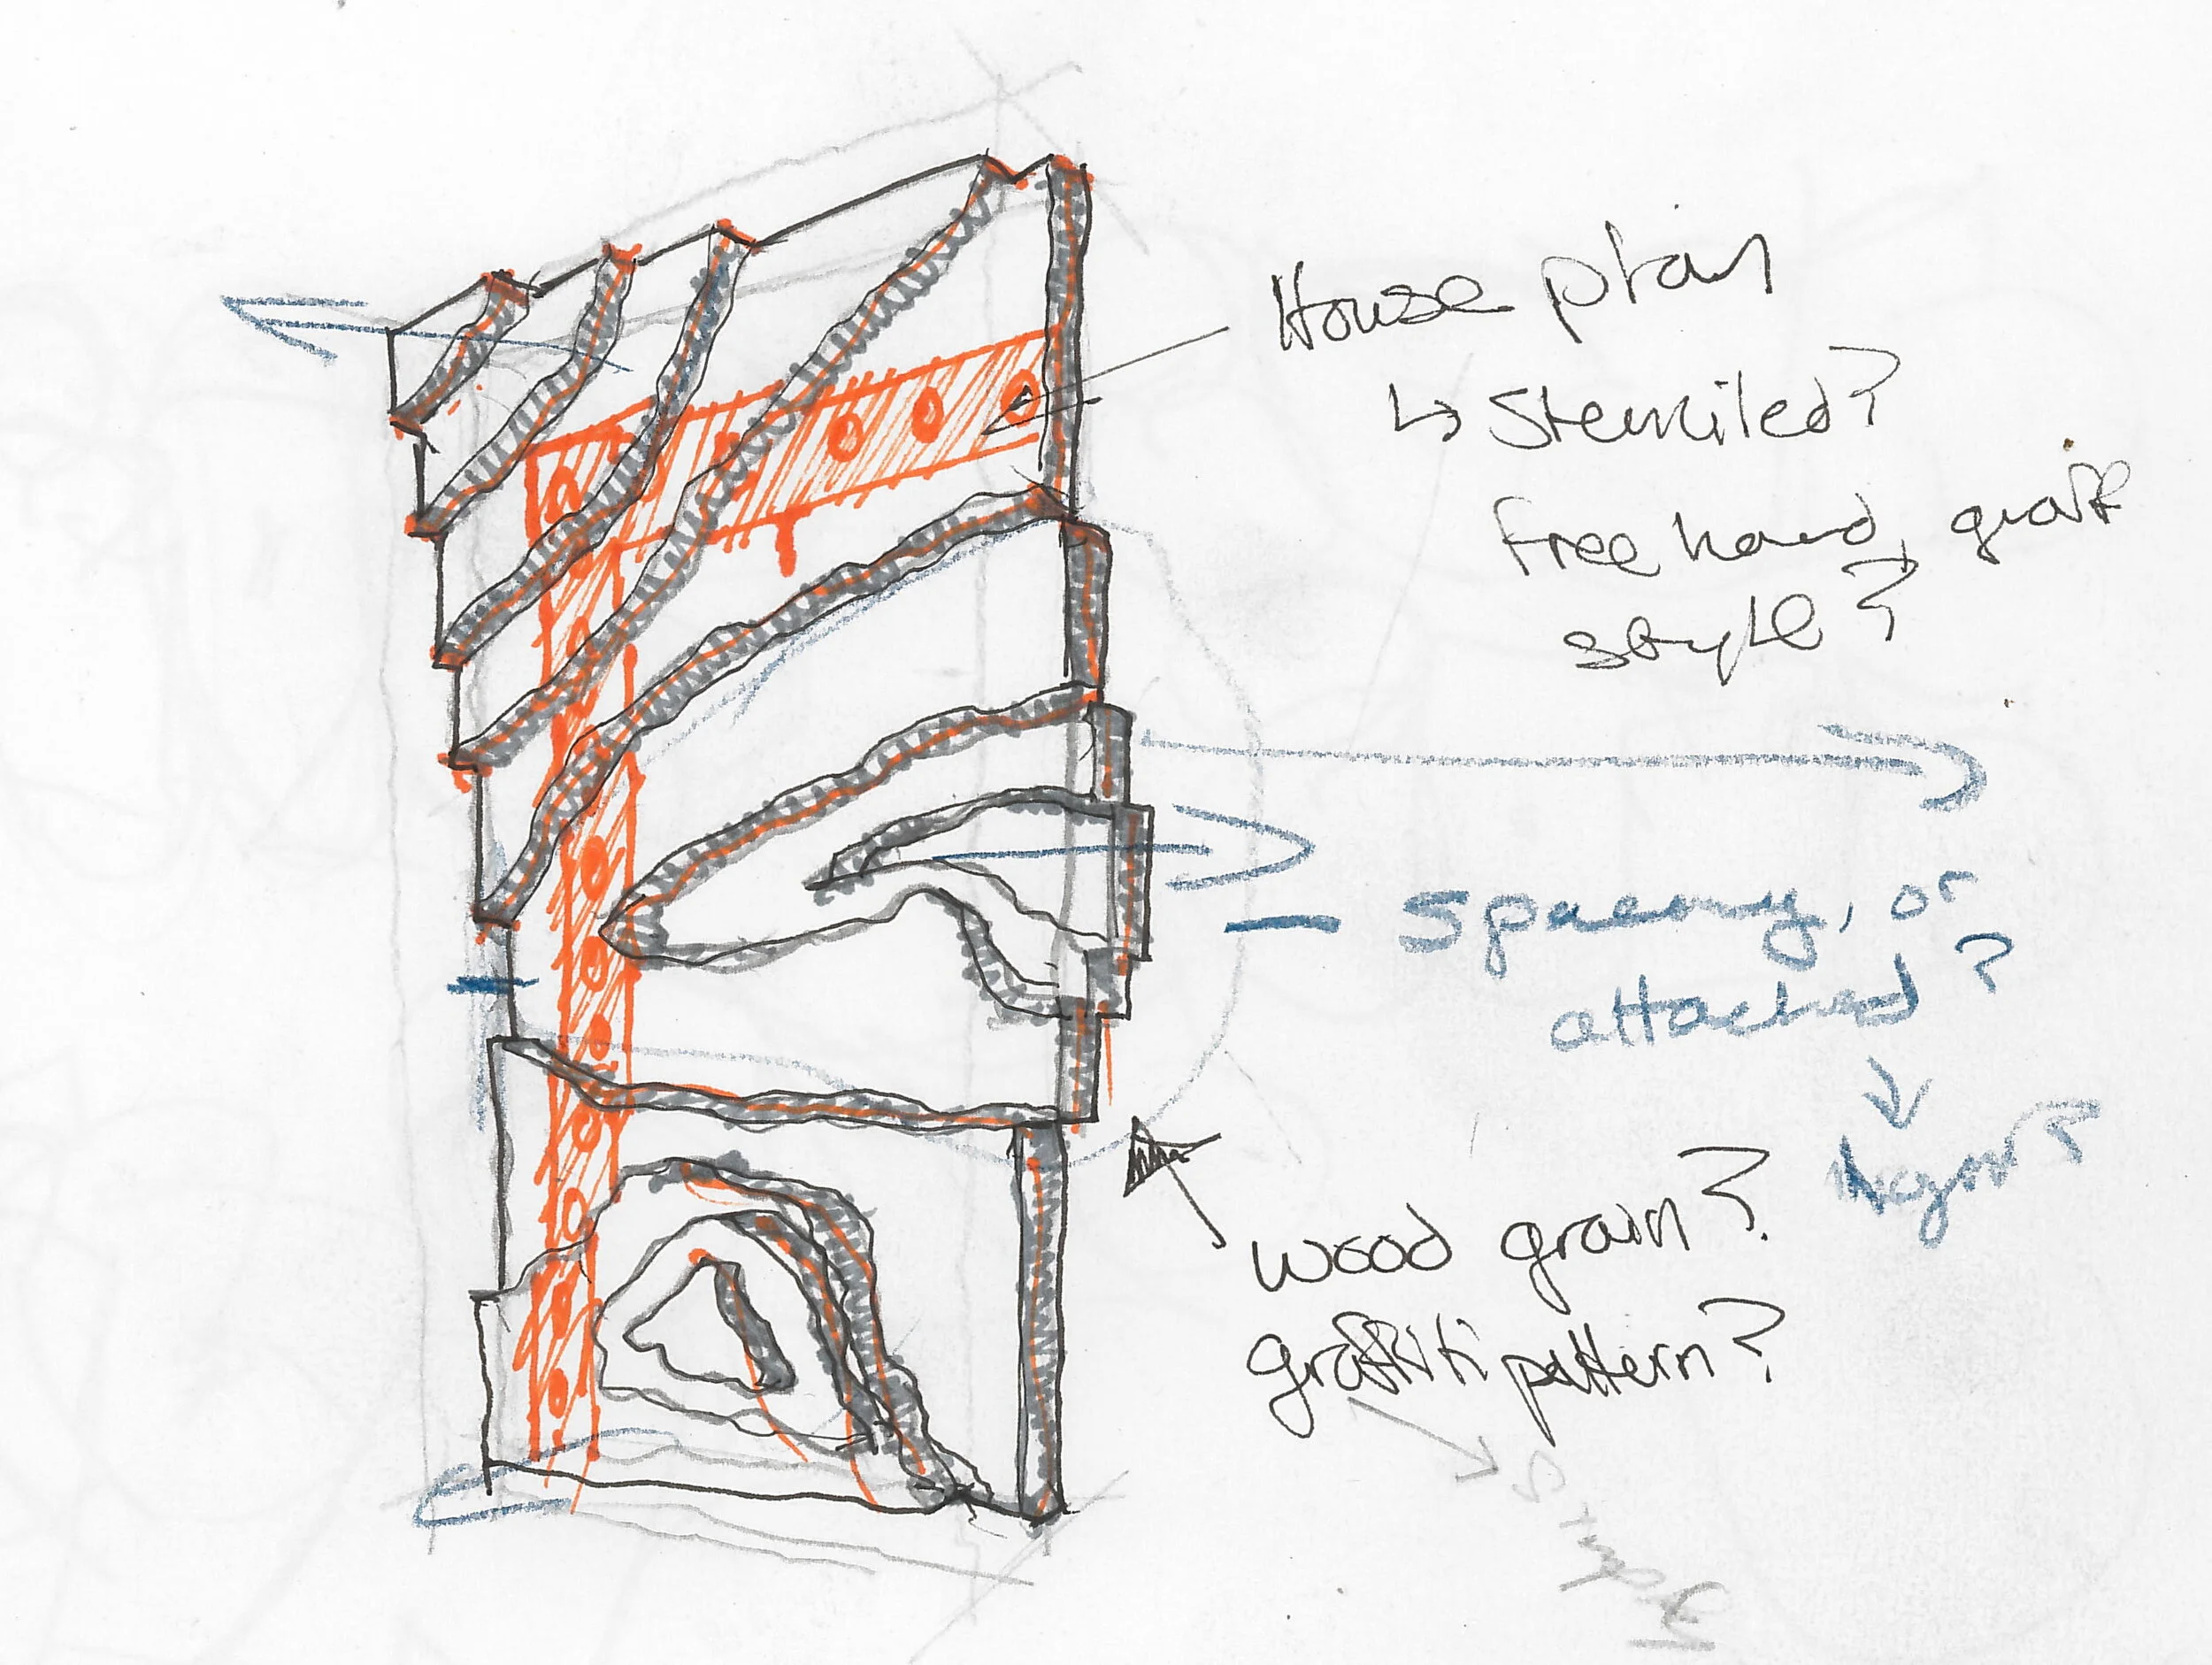 House plan
↳ Stenciled?
free hand, graff
style?
— spacing, or
attached?
↓
wood grain?
graffiti pattern?